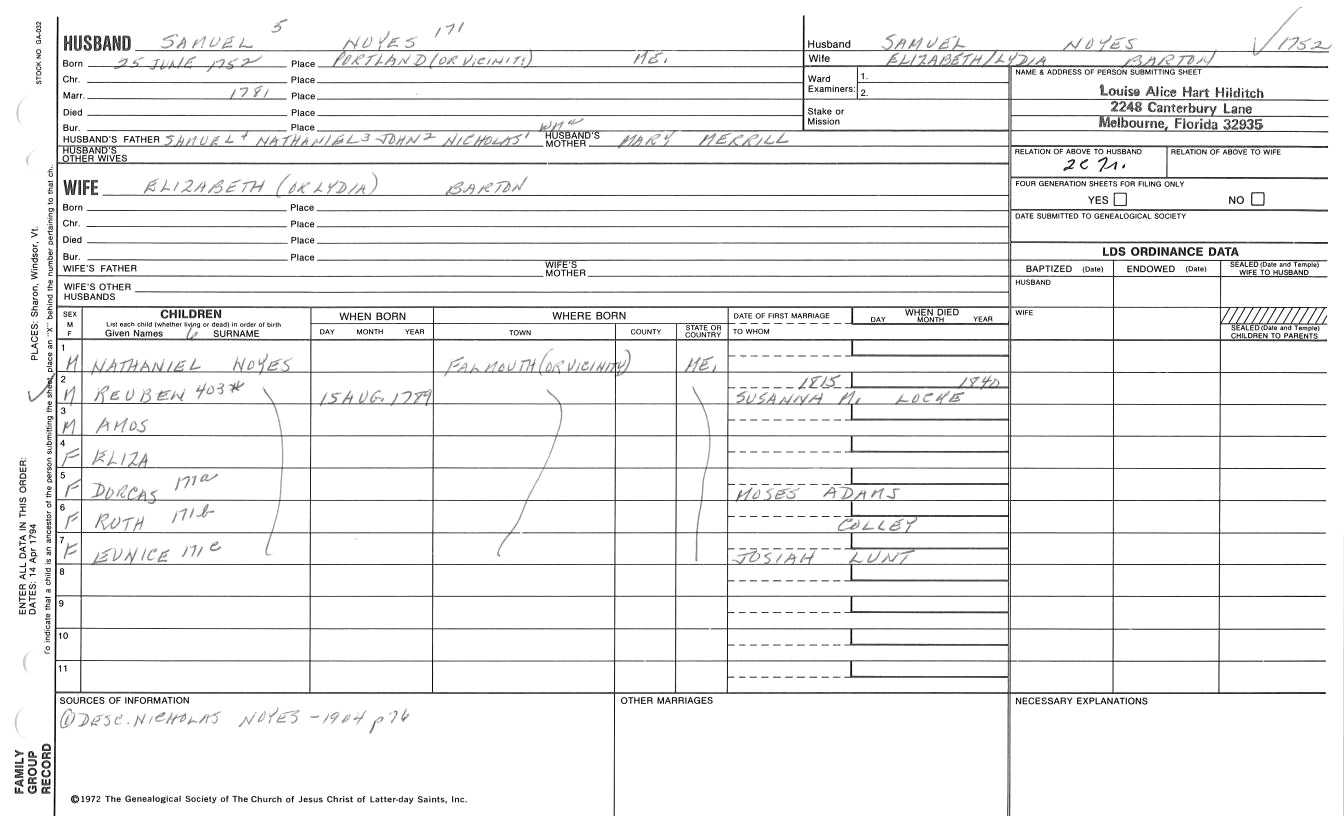 HUSBAND SAMUEL 5 NOYES 171
Born 25 JUNE 1752 Place PORTLAND (OR VICINITY) ME.
Chr. Place
Marr. 1781 Place
Died Place
Bur. Place
HUSBAND'S FATHER SAMUEL 4 NATHANIEL 3 JOHN 2 NICHOLAS 1 WMᵃ HUSBAND'S MOTHER MARY MERRILL
HUSBAND'S OTHER WIVES
WIFE ELIZABETH (OR LYDIA) BARTON
Born Place
Chr. Place
Died Place
Bur. Place
WIFE'S FATHER WIFE'S MOTHER
WIFE'S OTHER HUSBANDS
Husband SAMUEL NOYES √1752
Wife ELIZABETH/LYDIA BARTON
Ward Examiners: 1.
2.
Stake or Mission
NAME & ADDRESS OF PERSON SUBMITTING SHEET
Louise Alice Hart Hilditch
2248 Canterbury Lane
Melbourne, Florida 32935
RELATION OF ABOVE TO HUSBAND RELATION OF ABOVE TO WIFE
FOUR GENERATION SHEETS FOR FILING ONLY
YES NO
DATE SUBMITTED TO GENEALOGICAL SOCIETY
LDS ORDINANCE DATA
BAPTIZED (Date) ENDOWED (Date) SEALED (Date and Temple) WIFE TO HUSBAND
HUSBAND
WIFE
SEALED (Date and Temple) CHILDREN TO PARENTS
SEX M F
CHILDREN
List each child (whether living or dead) in order of birth
Given Names 6 SURNAME
WHEN BORN
DAY MONTH YEAR
WHERE BORN
TOWN COUNTY STATE OR COUNTRY
DATE OF FIRST MARRIAGE
TO WHOM
WHEN DIED
DAY MONTH YEAR
1 M NATHANIEL NOYES FALMOUTH (OR VICINITY) ME.
2 M REUBEN 403* 15 AUG. 1789 1815 SUSANNA M. LOCKE 1840
3 M AMOS
4 F ELIZA
5 F DORCAS 171a MOSES ADAMS
6 F RUTH 171b COLLEY
7 F EUNICE 171c JOSIAH LUNT
8
9
10
11
SOURCES OF INFORMATION
① DESC. NICHOLAS NOYES - 1904 p 76
OTHER MARRIAGES
NECESSARY EXPLANATIONS
©1972 The Genealogical Society of The Church of Jesus Christ of Latter-day Saints, Inc.
STOCK NO. GA-032
PLACES: Sharon, Windsor, Vt.
To indicate that a child is an ancestor of the person submitting the sheet, place an "X" behind the number pertaining to that ch.
ENTER ALL DATA IN THIS ORDER:
DATES: 14 Apr 1794
FAMILY GROUP RECORD